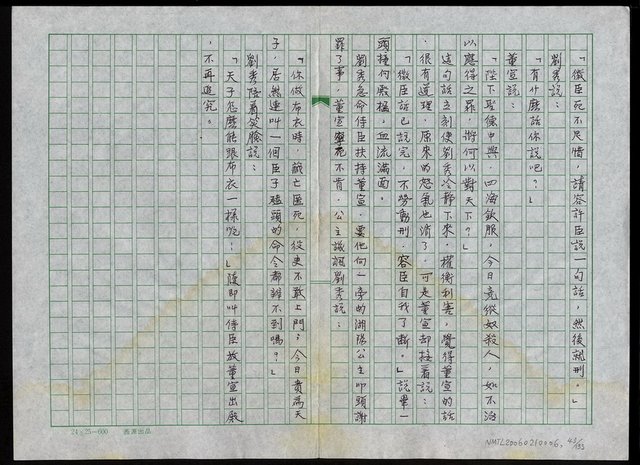 「微臣死不足惜，請容許臣說一句話，然後就刑。」
劉秀說：
「有什麼話你說吧？」
董宣說：
「陛下聖德中興，四海欽服，今日竟縱奴殺人，如不治
以應得之罪，將何以對天下？」
這句話立刻使劉秀冷靜下來，權衡利害，覺得董宣的話
很有道理，原來的怒氣也消了，可是董宣却接着說：
「微臣話已說完，不勞動刑，容臣自我了斷。」說畢一
頭撞向殿楹，血流滿面。
劉秀急命侍臣扶持董宣，要他向一旁的湖陽公主叩頭謝
罪了事，董宣寧死不肯，公主譏諷劉秀說：
「你做布衣時，藏亡匿死，從吏不敢上門；今日貴為天
子，居然連叫一個臣子磕頭的命令都辦不到嗎？」
劉秀陪着笑臉說：
「天子怎麼能跟布衣一樣呢！」隨即叫侍臣放董宣出殿
，不再追究。
24×25＝600
NMTL20060210006, 43/133